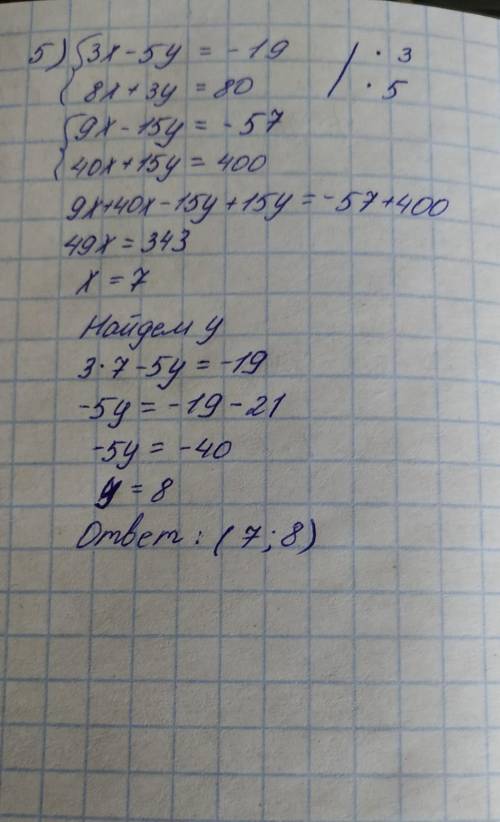 5) { 3x - 5y = -19 / · 3
{ 8x + 3y = 80 / · 5
{ 9x - 15y = -57
{ 40x + 15y = 400
9x + 40x - 15y + 15y = -57 + 400
49x = 343
x = 7
Найдем y
3 · 7 - 5y = -19
-5y = -19 - 21
-5y = -40
y = 8
Ответ : ( 7 ; 8 )